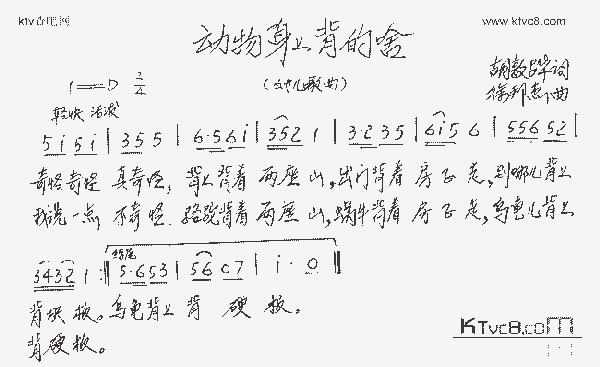 ktv吉吧网
www.ktvc8.com
动物身上背的啥
(幼儿歌曲)
1=D 2/4
胡敦骅词
徐邦杰曲
轻快 活泼
5 i 5 i | 3 5 5 | 6·5 6 i | 3 5 2 1 | 3·2 3 5 | 6 i 5 6 | 5 5 6 5 2 |
奇怪奇怪 真奇怪, 背上背着 两座山, 出门背着 房子走, 到哪儿背上
我说一点 不奇怪. 骆驼背着 两座山, 蜗牛背着 房子走, 乌龟儿背上
3 4 3 2 1 :‖ 结尾 5·6 5 3 | 5 6 0 7 | i · 0 ‖
背块板。乌龟背上 背 硬 板。
背硬板。
KTvc8.com